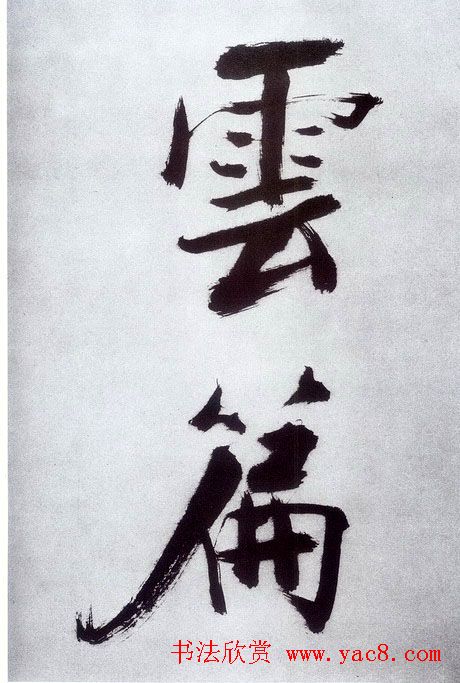 雲
篇
书法欣赏 www.yac8.com